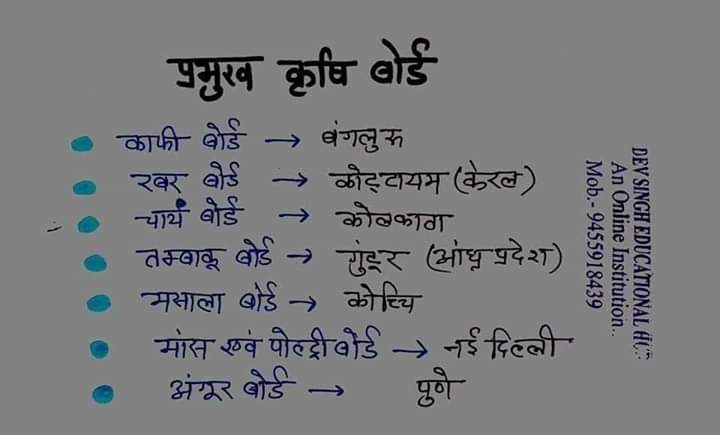 प्रमुख कृषि बोर्ड
काफी बोर्ड → बंगलुरू
रबर बोर्ड → कोट्टायम (केरल)
चाय बोर्ड → कोलकाता
तम्बाकू बोर्ड → गुंटूर (आंध्र प्रदेश)
मसाला बोर्ड → कोच्चि
मांस एवं पोल्ट्री बोर्ड → नई दिल्ली
अंगूर बोर्ड → पुणे
DEV SINGH EDUCATIONAL
An Online Institution..
Mob.- 9455918439